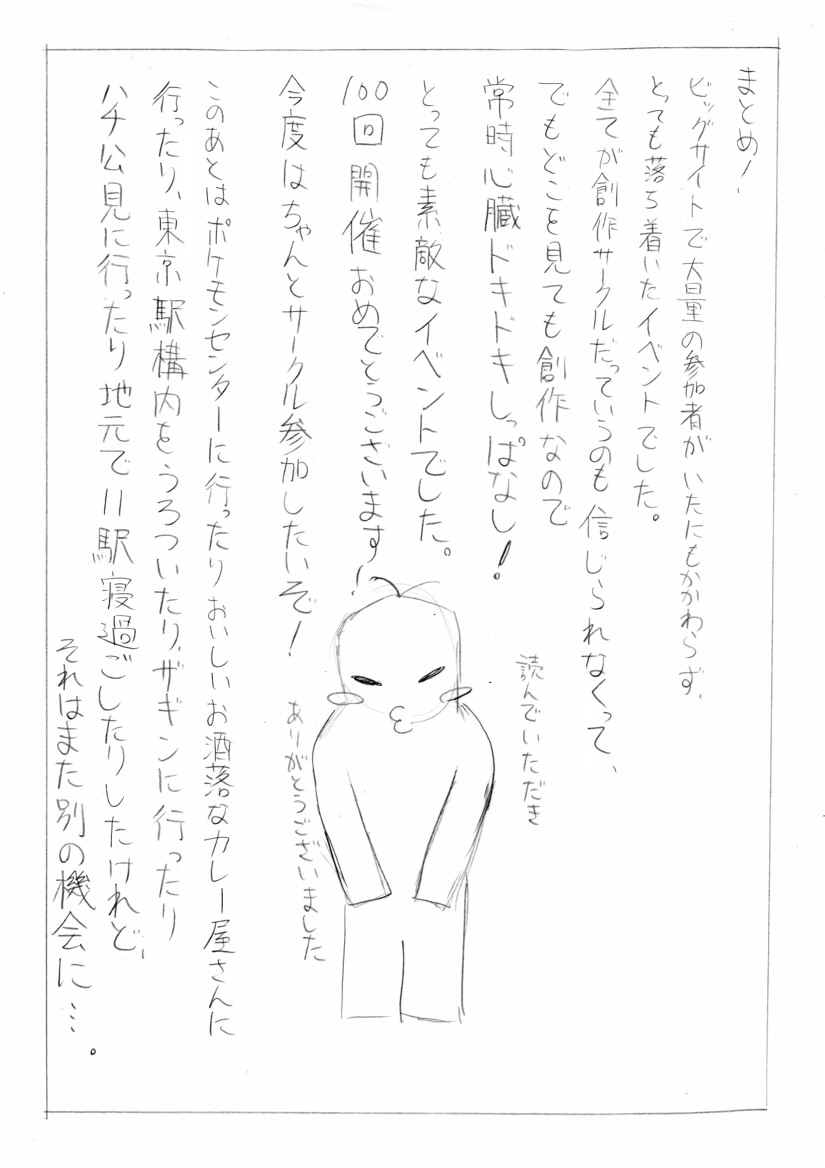 まとめ!
ビッグサイトで大量の参加者がいたにもかかわらず、
とても落ち着いたイベントでした。
全てが創作サークルだっていうのも信じられなくって、
でもどこを見ても創作なので
常時心臓ドキドキしっぱなし!
とっても素敵なイベントでした。
100回開催おめでとうございます!
今度はちゃんとサークル参加したいぞ!
読んでいただき
ありがとうございました
このあとはポケモンセンターに行ったりおいしいお洒落なカレー屋さんに
行ったり、東京駅構内をうろついたり、ザギンに行ったり
ハチ公見に行ったり地元で11駅寝過ごしたりしたけれど、
それはまた別の機会に…。